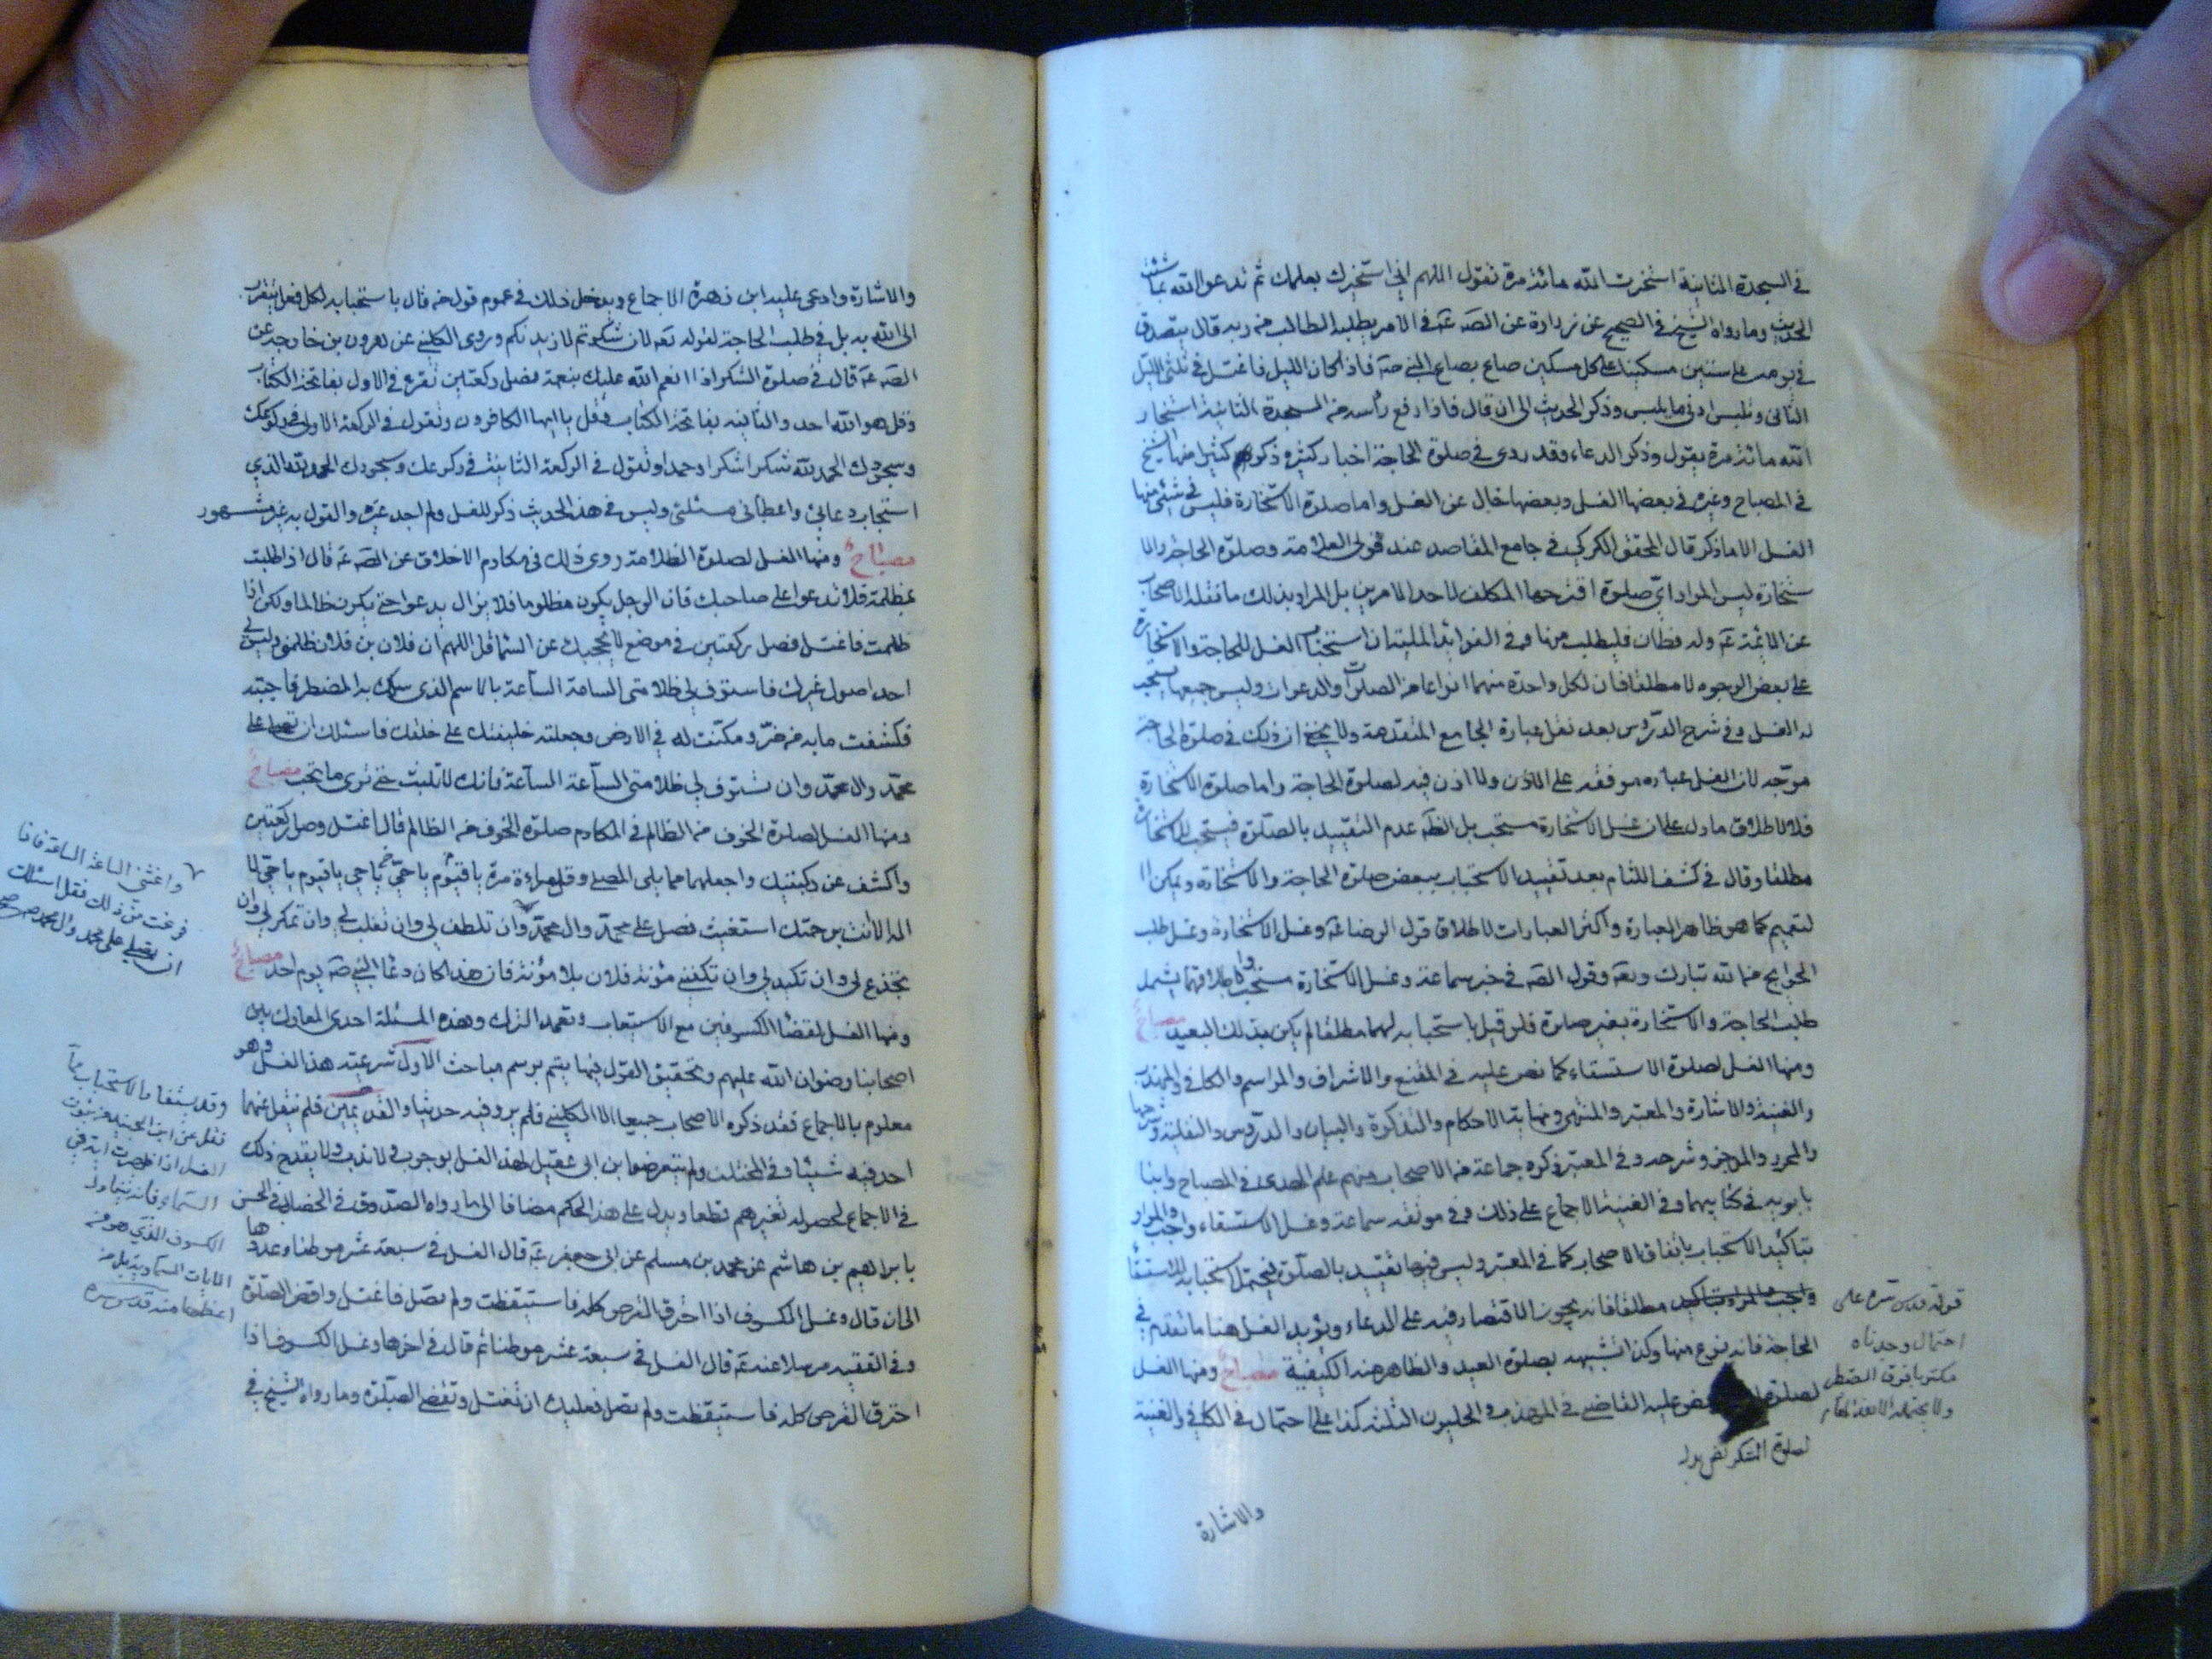 في السجدة الثانية استخرت الله مائة مرة تقول اللهم اني استخيرك بعلمك ثم تدعو الله بما شئت
الحديث وما رواه الشيخ في الصحيح عن زرارة عن الصه عه في الامر يطلبه الطالب من ربه قال يتصدق
في يومه على ستين مسكينا على كل مسكين صاع بصاع النبي صه فاذا كان الليل فاغتسل في ثلث الليل
الثاني وتلبس ادنى ما يلبس وذكر الحديث الى ان قال فاذا رفع رأسه من السجدة الثانية استخار
الله مائة مرة يقول وذكر الدعاء وقد روى في صلوة الحاجة اخبار كثيرة ذكر كثيرا منها الشيخ
في المصباح وغيره في بعضها الغسل وبعضها خال عن الغسل واما صلوة الاستخارة فليس في شيء منها
الغسل الا ما ذكر قال المحقق الكركي في جامع المقاصد عند قول العلامة وصلوة الحاجة والا
ستخارة ليس المراد اي صلوة اقترحها المكلف لاحد الامرين بل المراد بذلك ما نقله الاصحاب
عن الائمة عه وله مظان فليطلب منها وفي الفوائد الملية ان استحباب الغسل للحاجة والاستخارة
على بعض الوجوه لا مطلقا فان لكل واحدة منهما انواعا من الصلوات والدعوات وليس جميعها يستحب
له الغسل وفي شرح الدروس بعد نقل عبارة الجامع المتقدمة ولا يخفى ان ذلك في صلوة الحاجة
موجه لان الغسل عبادة موقفة على الاذن ولا اذن فيه لصلوة الحاجة واما صلوة الاستخارة
فلا لاطلاق ما دل على ان غسل الاستخارة مستحب بل الظه عدم التقييد بالصلوة فيستحب للاستخارة
مطلقا وقال في كشف اللثام بعد تقييد الاستحباب ببعض صلوة الحاجة والاستخارة ويمكن ا
لتعميم كما هو ظاهر العبارة واكثر العبارات لاطلاق قول الرضا عه وغسل الاستخارة وغسل طلب
الحوايج من الله تبارك وتعه وقول الصه في خبر سماعة وغسل الاستخارة مستحب واطلاقهما يشمل
طلب الحاجة والاستخارة بغير صلوة فلو قيل باستحبابه لهما مطلقا لم يكن بذلك البعيد مصباح
ومنها الغسل لصلوة الاستسقاء كما نص عليه في المقنع والاشراف والمراسم والكافي والمهذب
والغنية والاشارة والمعتبر والمنتهى ونهاية الاحكام والتذكرة والبيان والدروس والنفلية وشرحها
والمحرر والموجز وشرحه وفي المعتبر ذكره جماعة من الاصحاب منهم علم الهدى في المصباح وابنا
بابويه في كتابيهما وفي الغنية الاجماع على ذلك وفي موثقه سماعة وغسل الاستسقاء واجب والمراد
بتاكيد الاستحباب باتفاق الاصحاب كما في المعتبر وليس فيها تقييد بالصلوة فيحتمل استحبابه للاستسقاء
مطلقا فانه يجوز الاقتصار فيه على الدعاء ويؤيد الغسل هنا ما تقدم في
الحاجة فانه نوع منها وكذا تشبيهه بصلوة العيد والظاهر منه الكيفية مصباح ومنها الغسل
لصلوة نص عليه القاضي في المهذب والحلبيون الثلثة كذا على احتمال في الكافي والغنية
لصلوة الشكر نص بدل
والاشارة
قوله قدس سره على
احتمال وجدناه
مكتوبا فوق السطر
والاشارة وادعى عليه ابن زهرة الاجماع ويدخل ذلك في عموم قول من قال باستحبابه لكل فعل يتقرب
الى الله به بل في طلب الحاجة لقوله تعه لان شكرتم لازيدنكم وروى الكليني عن هرون بن خارجه عن
الصه عه قال في صلوة الشكر اذا انعم الله عليك بنعمة فصل ركعتين تقرء في الاولى بفاتحة الكتاب
وقل هو الله احد والثانية بفاتحة الكتاب وقل يا ايها الكافرون وتقول في الركعة الاولى في ركوعك
وسجودك الحمد لله شكرا شكرا وحمدا وتقول في الركعة الثانية في ركوعك وسجودك الحمد لله الذي
استجاب دعائي واعطاني مسئلتي وليس في هذا الحديث ذكر للغسل ولم اجد غيره والقول به غير مشهور
مصباح ومنها الغسل لصلوة الظلامة روى ذلك في مكارم الاخلاق عن الصه عه قال اذا طلبت
بمظلمة فلا تدعوا على صاحبك فان الرجل يكون مظلوما فلا يزال يدعوا حتى يكون ظالما ولكن اذا
ظلمت فاغتسل وصل ركعتين في موضع لا يحجبك عن السماء قل اللهم ان فلان بن فلان ظلمني وليس لي
احد اصول غيرك فاستوف لي ظلامتي الساعة الساعة بالاسم الذي سئلك به المضطر فاجبته
فكشفت ما به من ضر ومكنت له في الارض وجعلته خليفتك على خلقك فاسئلك ان تصلي على
محمد وال محمد وان تستوف لي ظلامتي الساعة الساعة فانك لا تلبث حتى ترى ما تحب مصباح
ومنها الغسل لصلوة الخوف من الظالم في المكارم صلوة الخوف من الظالم قال اغتسل وصل ركعتين
واكشف عن ركبتيك واجعلهما مما يلي المصلى وقل مائة مرة يا قيوم يا حي يا حي يا قيوم يا حي لا
اله الا انت برحمتك استغيث فصل على محمد وال محمد وان تلطف لي وان تغلب لي وان تمكر لي وان
تخدع لي وان تكيد لي وان تكفيني مؤنة فلان بلا مؤنة فان هذا كان دعاء النبي صه يوم احد مصباح
ومنها الغسل لقضاء الكسوفين مع الاستيعاب وتعمد الترك وهذه المسئلة احدى المعارك بين
اصحابنا رضوان الله عليهم وتحقيق القول فيها يتم برسم مباحث الاول شرعيته هذا الغسل وهو
معلوم بالاجماع فقد ذكره الاصحاب جميعا الا الكليني فلم يرو فيه حديثا والقديمين فلم ينقل عنهما
احد فيه شيئا وفي المختلف ولم يتعرض ابن ابي عقيل لهذا الغسل بوجوب ولا ندب ولا يقدح ذلك
في الاجماع لحصوله بغيرهم قطعا ويدل على هذا الحكم مضافا الى ما رواه الصدوق في الخصال في الحسن
بابراهيم بن هاشم عن محمد بن مسلم عن ابي جعفر عه قال الغسل في سبعة عشر موطنا وعدها
الى ان قال وغسل الكسوف اذا احترق القرص كله فاستيقظت ولم تصل فاغتسل واقض الصلوة
وفي الفقيه مرسلا عنه عه قال الغسل في سبعة عشر موطنا ثم قال في اخرها وغسل الكسوف اذا
احترق القرص كله فاستيقظت ولم تصل فعليك ان تغتسل وتقضي الصلوة وما رواه الشيخ في
واغثني الساعة الساعة فاذا
فرغت من ذلك فقل اسئلك
ان تصلي على محمد وال محمد صح
نقل عن ابن الجنيد
الغسل اذا ظهرت اية في
السماء فانه يتناول
الكسوف الذي هو من
الايات السماوية بل من
اعظمها منه قدس سره